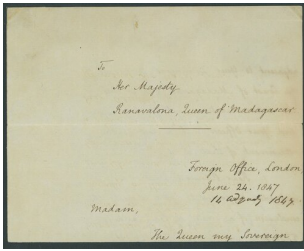 To
Her Majesty
Ranavalona, Queen of Madagascar
Foreign Office, London
June 24. 1847
14 1847
Madam,
The Queen my Sovereign